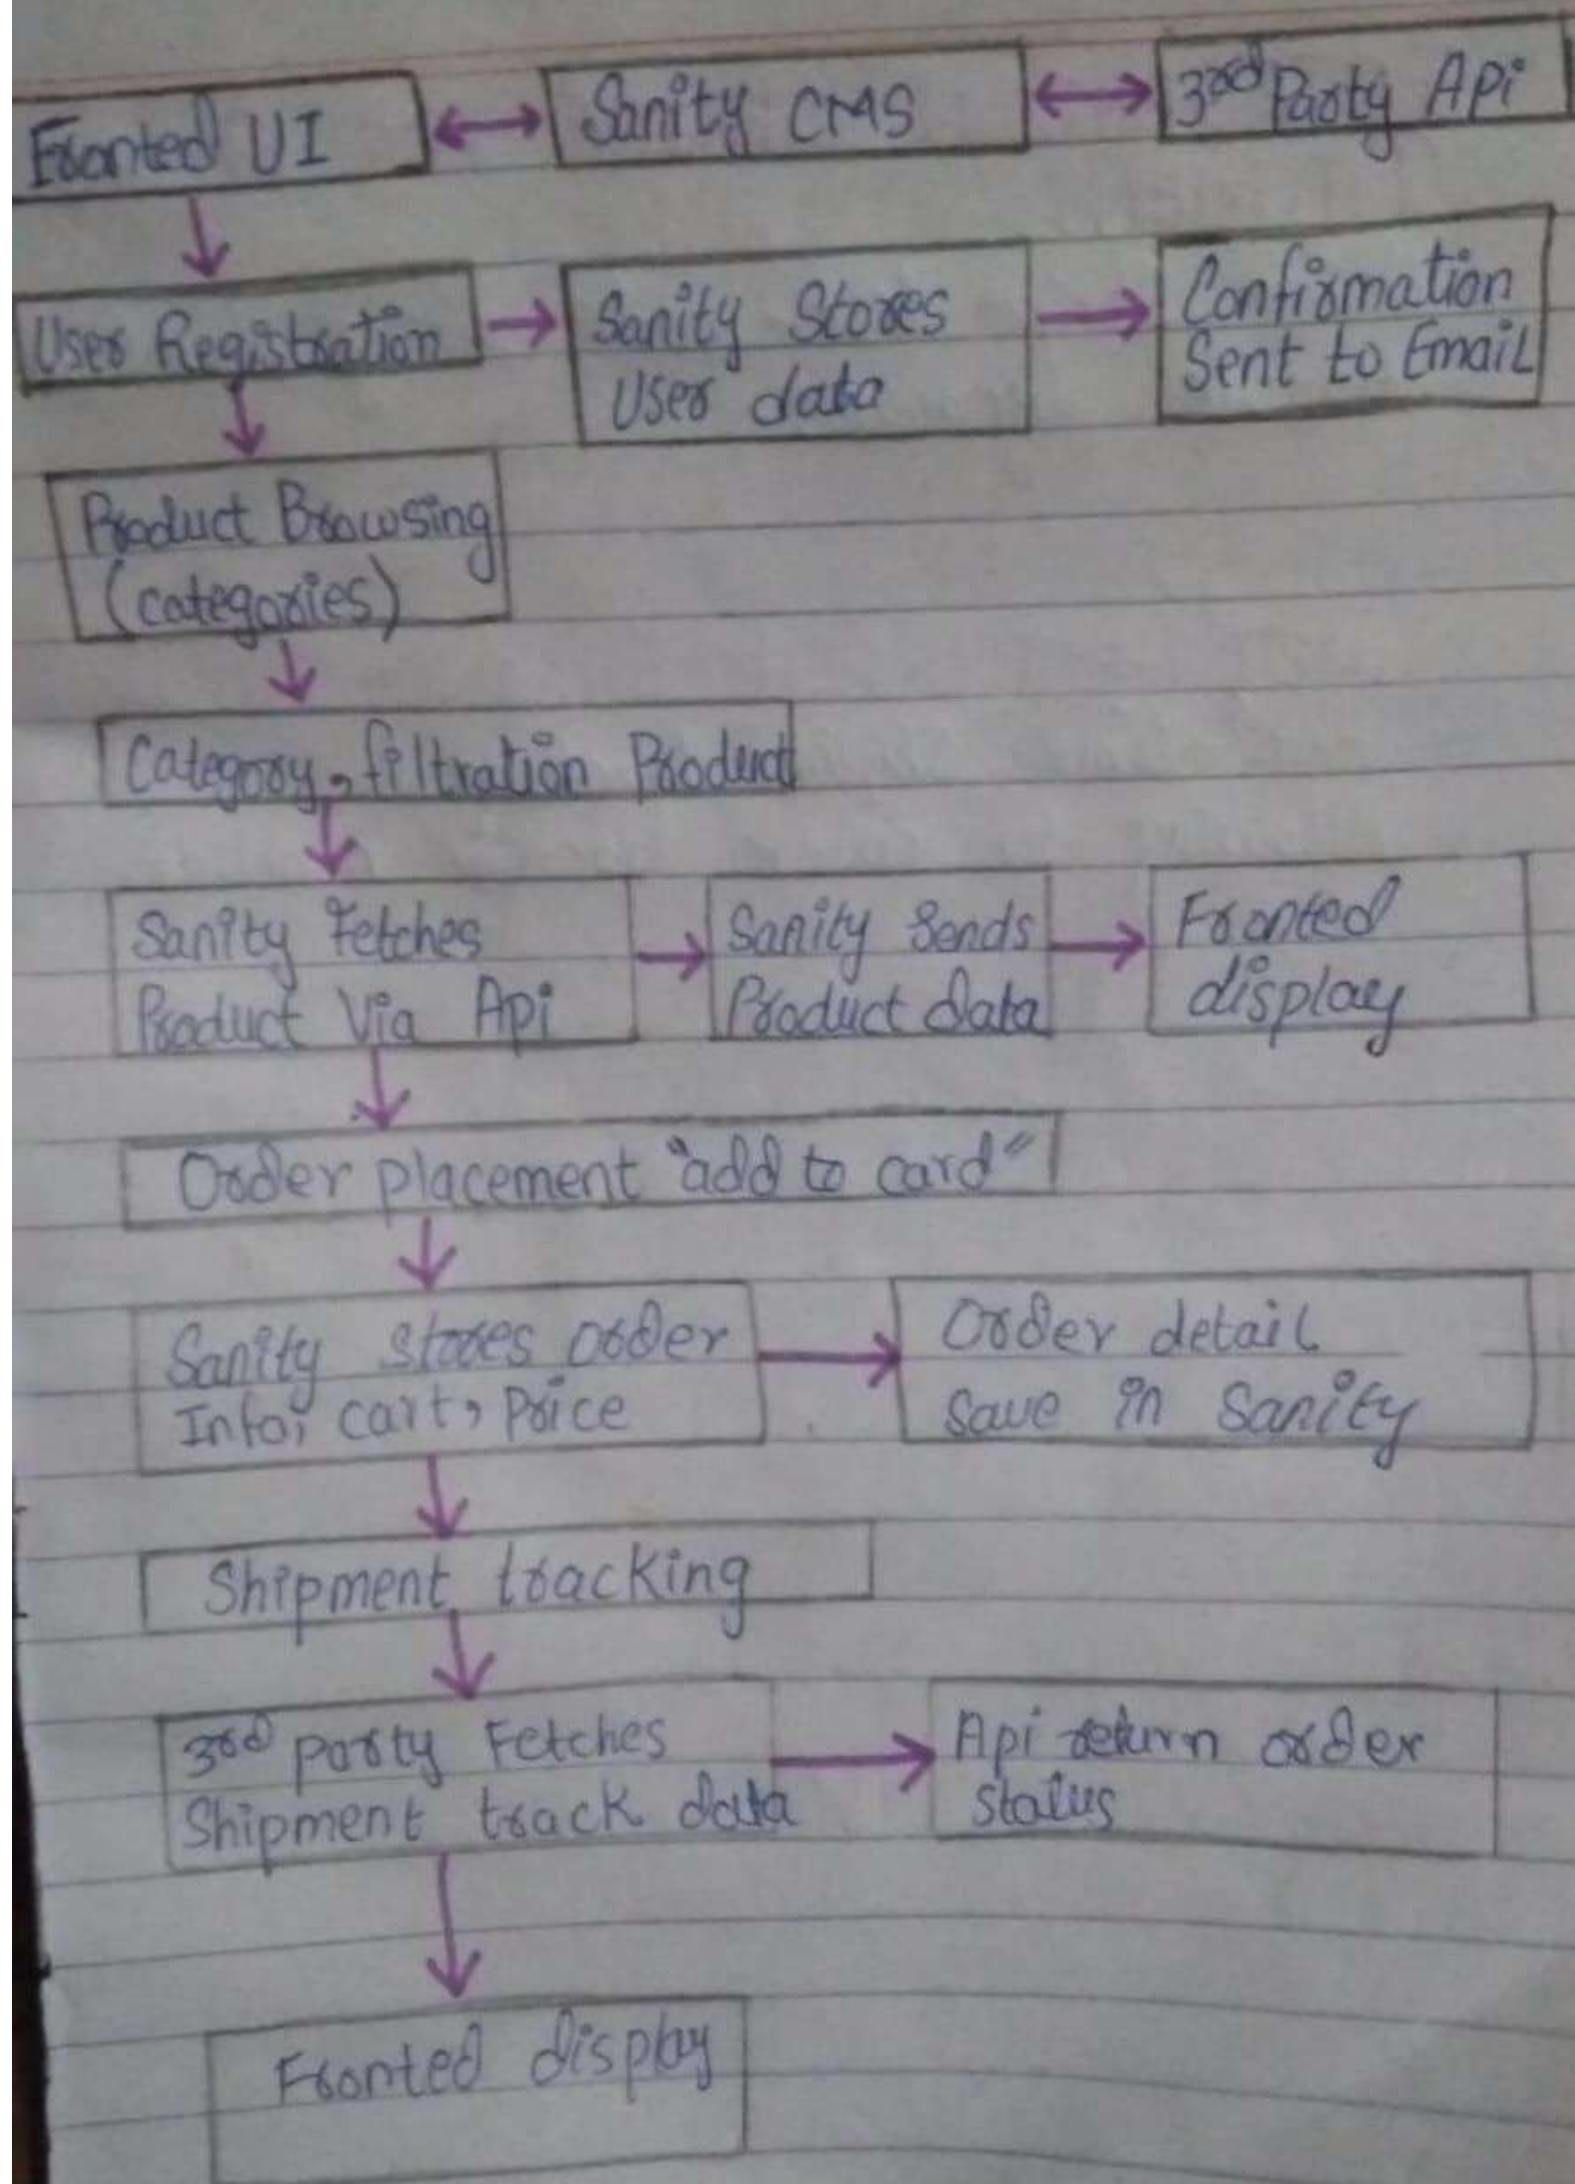 Fronted UI
Sanity CMS
3rd Party Api
User Registration
Sanity Stores
User data
Confirmation
Sent to Email
Product Browsing
(categories)
Category, filtration Product
Sanity Fetches
Product Via Api
Sanity Sends
Product data
Fronted
display
Order placement "add to card"
Sanity stores order
Info, cart, Price
Order detail
Save in Sanity
Shipment tracking
3rd party Fetches
Shipment track data
Api return order
status
Fronted display